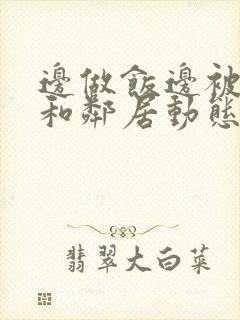 邊做飯邊被
和鄰居動態
翡翠大白菜